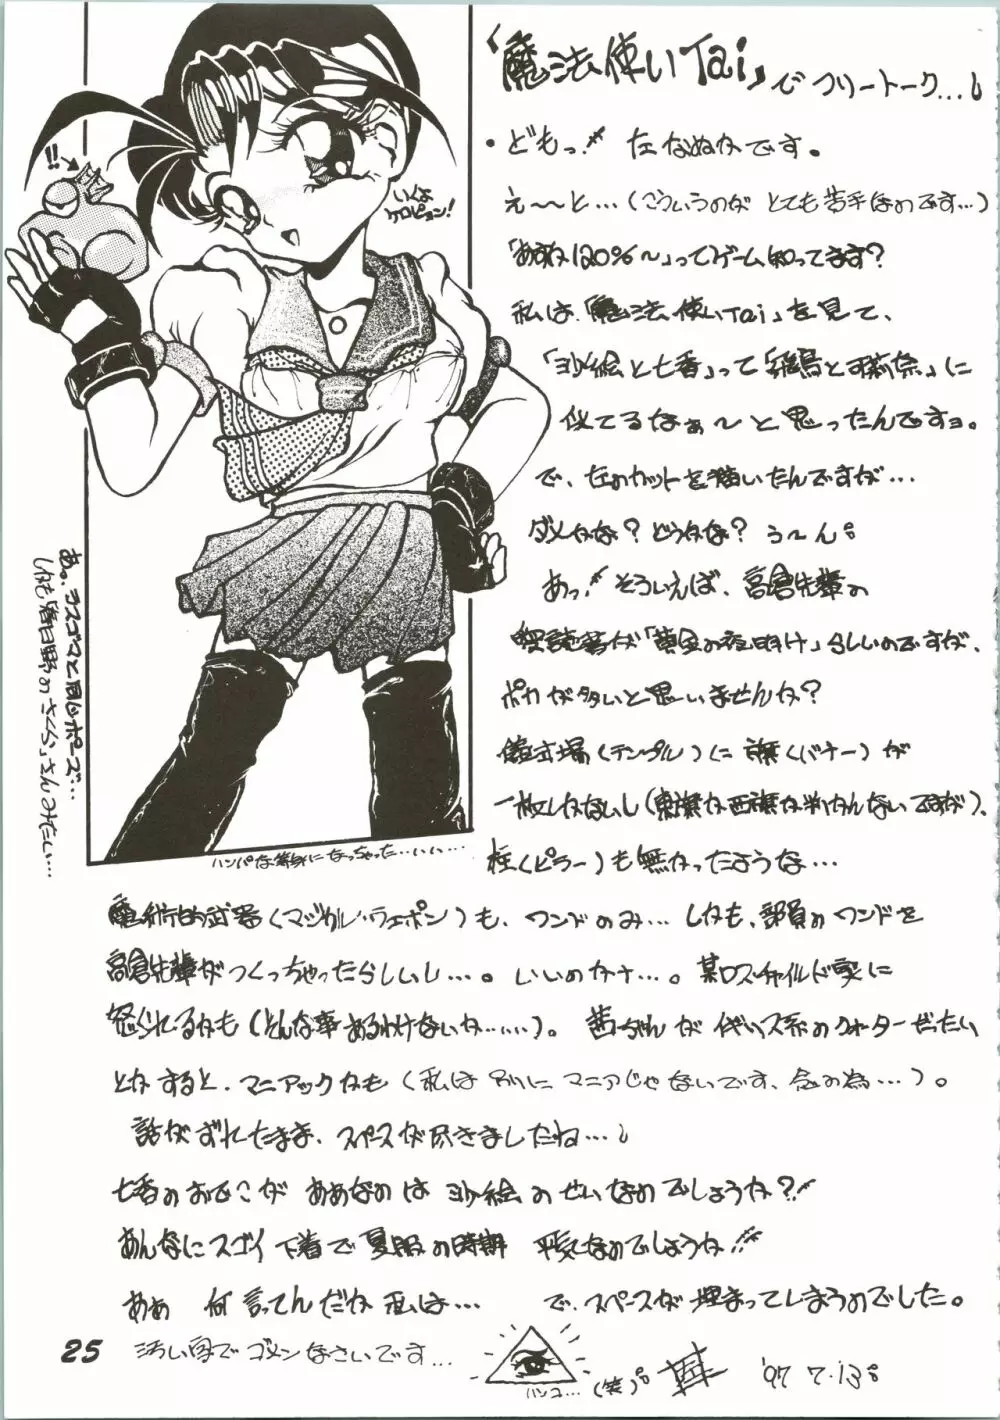 「魔法使いTai」でフリートーク…!
・どもっ!! 左なぬかです。
え〜〜と…(こういうのが とても苦手なのです…)
「あすか120%〜」ってゲーム知ってます?
私は、「魔法使いTai」を見て、
「沙絵と七香」って「飛鳥と可莉奈」に
似てるなぁ〜と思ったんですョ。
で、左のカットを描いたんですが…
ダメかな? どうかな? う〜ん。
あっ!! そういえば、高倉先輩の
聖読書が「黄金の夜明け」らしいのですが、
ポカが多いと思いませんか?
儀式場(テンプル)に 旗(バナー)が
一枚しかないし(東旗か西旗か判かんないですが)、
柱(ピラー)も無かったような…
魔術的武器(マジカル・ウェポン)も、ワンドのみ… しかも、部員のワンドを
高倉先輩がつくっちゃったらしいし…。いいのかナ…。某ロスチャイルド家に
怒られるかも(そんな事あるわけないか……)。 茜ちゃんが イギリス系のクォーターだったい
とかすると、マニアックかも(私は別にマニアじゃないです、念の為…)。
話がずれたまま、スペースが尽きましたね…!
七香のおでこが ああなのは 沙絵のせいなのでしょうか?!!
あんなにスゴイ下着で夏服の時期 平気なのでしょうか!!
ああ 何言ってんだか私は… で、スペースが埋まってしまうのでした。
汚い字で ゴメンなさいです…
ハンコ… (笑)。 '97 7.13。
!!
いくよ
ケロピョン!
あっ、ラスゴマと同じポーズ…
しかも春日野の「さくら」さんみたい…
ハンパな等身になっちゃった……い…
25